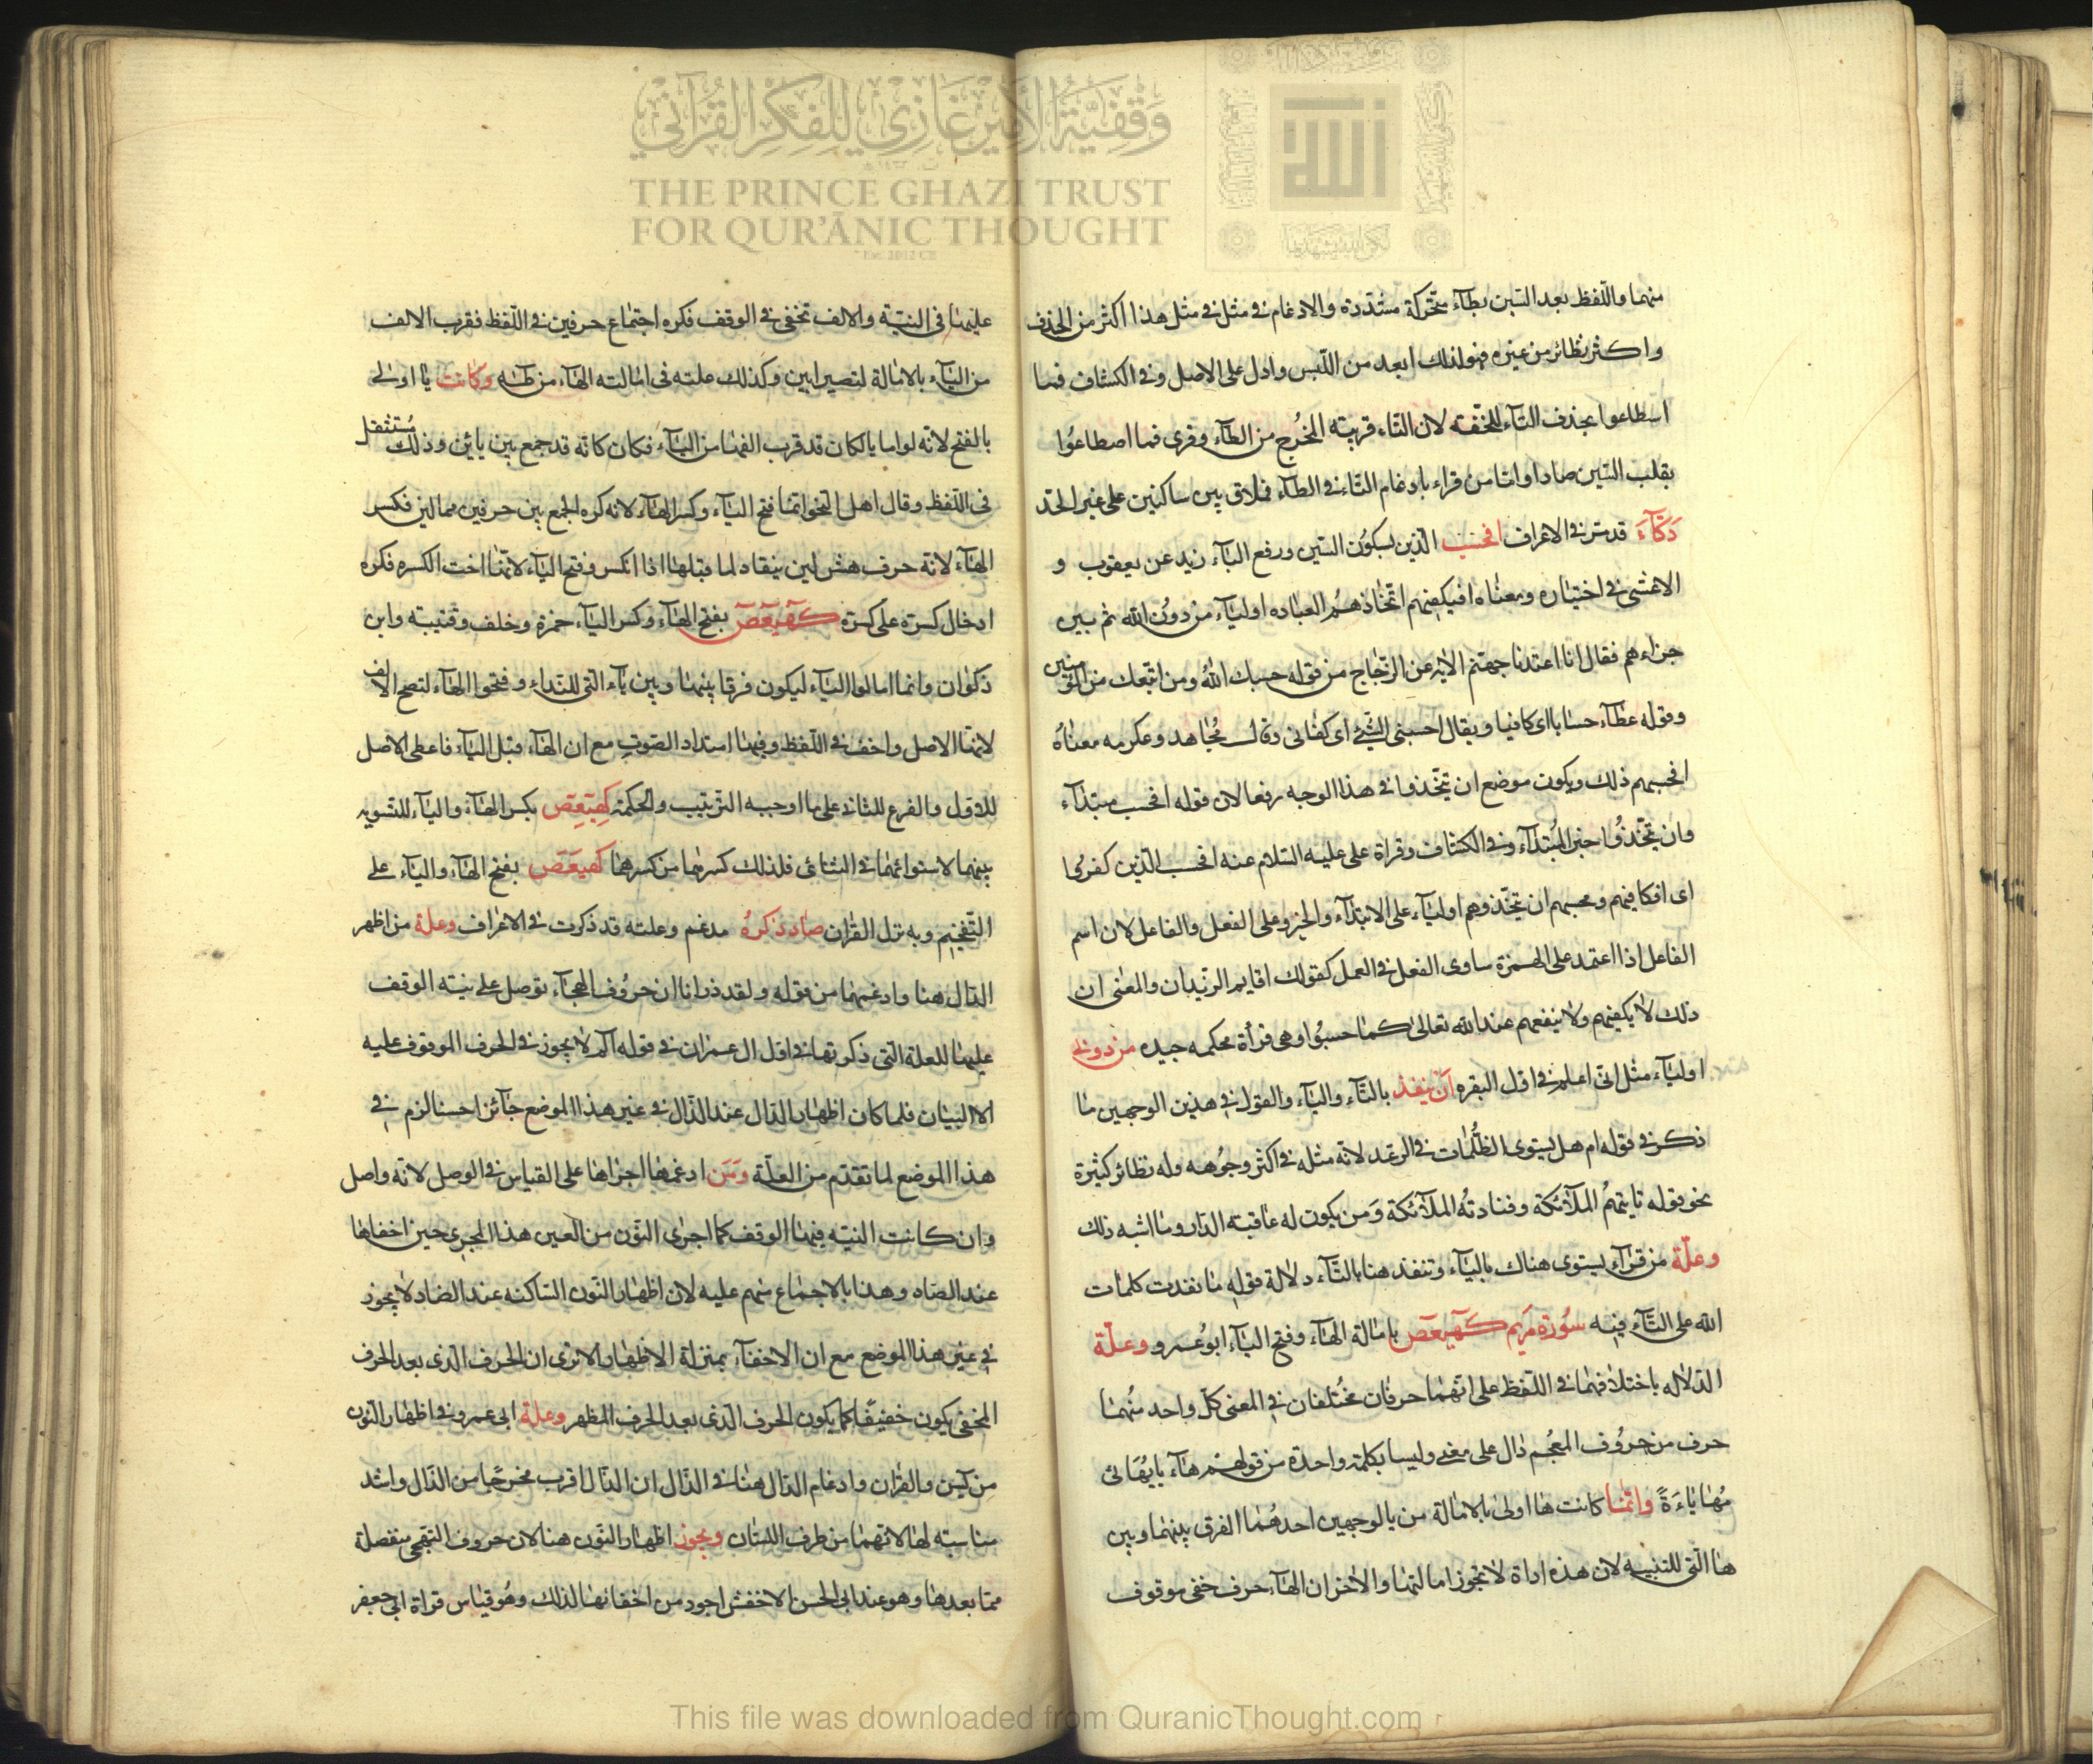 وقفية الأمير غازي للفكر القرآني
THE PRINCE GHAZI TRUST
FOR QUR'ĀNIC THOUGHT
منهما واللّفظ بعد السّين بطآء متحّركة مشدّدة والادغام في مثل في مثل هذا اكثر من الحذف
واكثر نظائر من غيره فهو لذلك ابعد من اللّبس وادل على الاصل وفى الكشاف فما
اسطاعوا بحذف التآء للخّفه لان التّاء قريبة المخرج من الطآء وقرى فما اصطاعُوا
بقلب السّين صادا وامّا من قراء بادغام التّاء فى الطآء فملاق بين ساكنين على غير الحّد
دَكّآءَ قد مرّ فى الاعراف افحسب الّذين بسكوُن السّين ورفع البآء زيد عن يعقوب و
الاعشى فى اختياره ومعناه افيكفيهم اتّخاذهم العباده اوليآء من دون الله ثم بين
جزاءهم فقال انا اعتدنا جهنّم الايه عن الزّجّاج من قوله حسبك الله ومن اتّبعك من المؤمنين
وقوله عطآء حسابا اى كافيا ويقال احسبنى الشّئ اى كفانى وقال مجاهد وعكرمه معناهُ
افحسبهم ذلك ويكون موضع ان يتّخذوا فى هذا الوجه رفعا لان قوله افحسب مبتدآء
وان يتّخذوُا خبر المُبتدآء وفى الكشاف وقراة على عليه السّلام عنه افحسب الّذين كفروُا
اى افكافيهم ومحسبهم ان يتّخذوهم اوليآء على الابتدآء والخبر وعلى الفعل والفاعل لان اسم
الفاعل اذا اعتمد على الهمزة ساوى الفعل فى العمل كقولك اقايم الزّيدان والمعنى ان
ذلك لا يكفيهم ولا ينفعهم عند الله تعالى كما حسبُوا وهى قرأة محكمه جيده من دونى
اوليآء مثل انّى اعلم فى اوّل البقره ان ينفد بالتّآء واليآء والقول فى هذين الوجهين ما
ذكر فى قوله ام هل يستوى الظّلُمات فى الرّعد لانّه مثله فى اكثر وجُوهه وله نظائر كثيرة
نحو قوله تايتهمُ الملآئكة وفنادتُه الملآئكة وَمن يكون له عاقبة الدّار وما اشبه ذلك
وعلّة من قرآء يستوى هناك باليآء وتنفد هنا بالتّآء دلالة قوله ما نفدت كلمات
الله على التّآء فيه سُورة مَريم كهيعص بامالة الهآء وفتح اليآء ابوعُمرو وعلّة
الدّلاله باختلافهما فى اللّفظ على انّهما حرفان مختلفان فى المعنى كلّ واحد منُهما
حرف من حروُف المعُجم دال على معنى وليسا بكلمة واحدة من قولهم هآء يا يُهائى
مُهاياءَةً وانّما كانت ها اولى بالامالة من يا لوجهين احدهُما الفرق بينهما وبين
ها الّتى للتنبيه لان هذه اداة لا تجوز امالتها والاخر ان الهآء حرف خفى موقوف
عليها فى النيّة والالف تخفى فى الوقف فكره اجتماع حرفين فى اللّفظ فقرب الالف
من اليآء بالامالة لتصير ابين وكذلك علته فى امالته الهآء من طه وكانت يا اولى
بالفتح لانّه لو امال يا لكان قد قرب الفها من اليآء فكان كانه قد جمع بين يائين وذلك مُستثقل
فى اللّفظ وقال اهل النّحو انّما فتح اليآء وكسر الهآء لانه كره الجمع بين حرفين ممالين فكسر
الهآء لانّه حرف هش لين ينقاد لما قبلها اذا انكسر وفتح اليآء لانّها اخت الكسره فكره
ادخال كسرة على كسرة كهيعص بفتح الهآء وكسر اليآء حمزة وخلف وقتيبه وابن
ذكوان وانما امالوا اليآء ليكون فرقا بينها وبين يآء الّتى للنّداء وفتحوا الهآء لتصح الالف
لانّها الاصل واخف فى اللّفظ وفيها امتداد الصّوت مع ان الهآء قبل اليآء فاعطى الاصل
للاوّل والفرع للثانى على ما اوجبه التّرتيب والحكمة كهيعص بكسر الهآء واليآء للتّسويه
بينهما لاستوائهما فى الثنائى فلذلك كسرهما من كسرهما كهيعص بفتح الهآء واليآء على
التّفخيم وبه نزل القران صاد ذكرُ مدغم وعلته قد ذكرت فى الاعراف وعلة من اظهر
الدّال هنا وادغمها من قوله ولقد ذرانا ان حروُف الهجآء توصل على نيّة الوقف
عليها للعلة الّتى ذكرتها فى اوّل ال عمران فى قوله الم لا يجوز فى الحرف الموقوف عليه
الا البيان فلما كان اظهار الدّال عند الذّال فى غير هذا الموضع جآئزا حسنا لزم فى
هذا الموضع لما تقدّم من العلّة ومَن ادغمها اجراها على القياس فى الوصل لانّه واصل
وان كانت النيّه فيها الوقف كما اجرى النّون من العين هذا المجرى حين اخفاها
عند الصّاد وهذا بالاجماع منهم عليه لان اظهار النّون السّاكنه عند الصّاد لا يجوز
فى غير هذا الموضع مع ان الاخفآء بمنزلة الاظهار الا ترى ان الحرف الّذى بعد الحرف
المخفى يكون خفيفًا كما يكون الحرف الّذى بعد الحرف المظهر وعلّة ابى عمرو فى اظهار النّون
من يٓسٓ والقران وادغام الدّال هنا فى الذّال ان الدّال اقرب مخرجًا من الذّال واشد
مناسبته لها لانّهما من طرف اللّسان ويجوز اظهار النّون هنا لان حروف التّهجّى منفصلة
ممّا بعدها وهو عند ابى الحسن الاخفش اجود من اخفائها لذلك وهُو قياس قراة ابى جعفر
This file was downloaded from QuranicThought.com